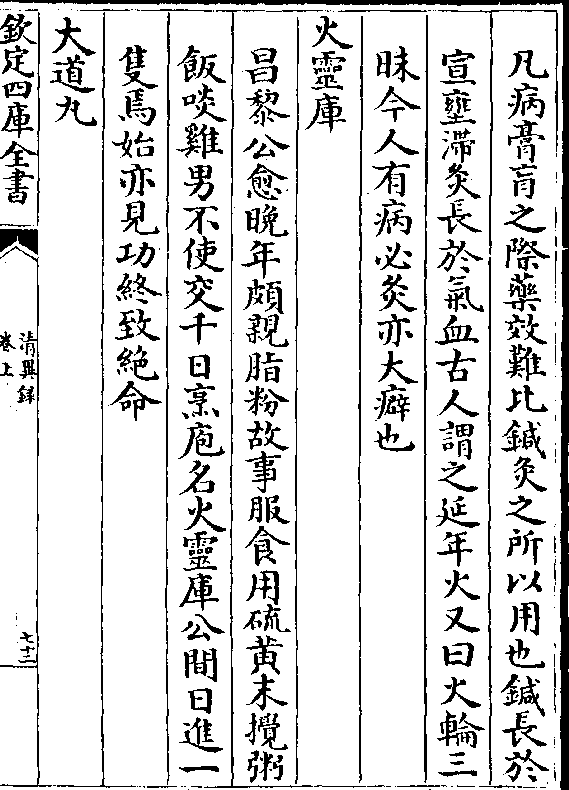 凡病膏肓之際藥效難比鍼灸之所以用也鍼長於
宣壅滯灸長於氣血古人謂之延年火又曰火輪三
昧今人有病必灸亦大癖也
火靈庫
昌黎公愈晚年頗親脂粉故事服食用硫黄末攪粥
飯啖雞男不使交千日烹庖名火靈庫公間日進一
隻焉始亦見功終致絶命
大道丸
欽定四庫全書
清異録
卷上
七十二